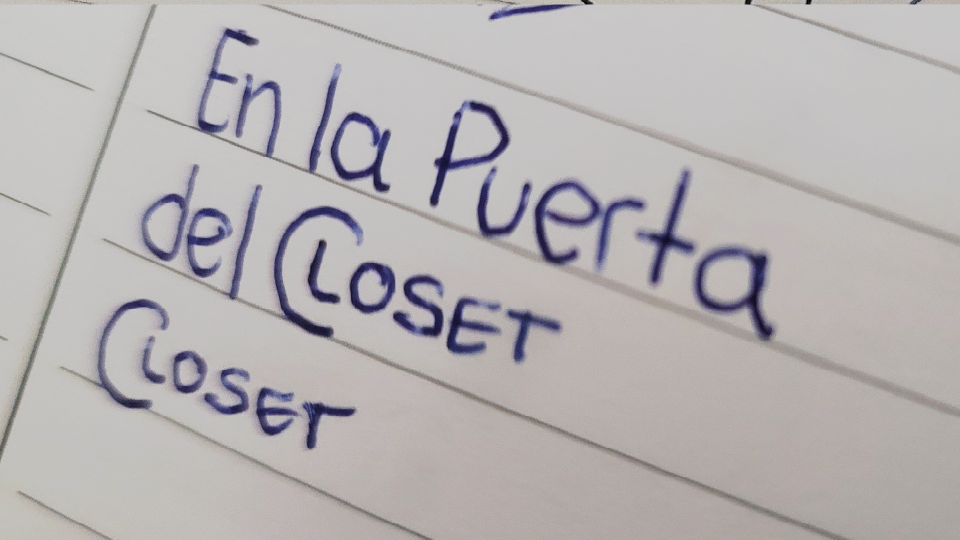 En la Puerta
del CLOSET
CLOSET